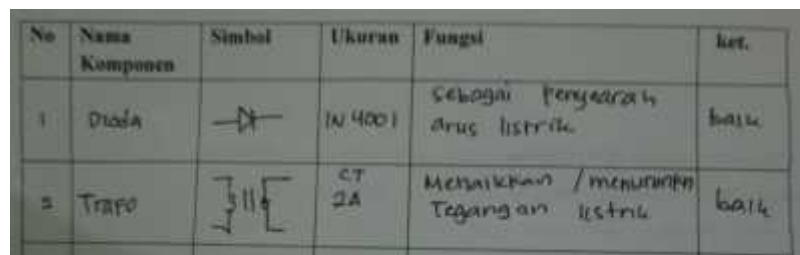 No Nama Komponen Simbol Ukuran Fungsi ket.
1 Dioda IN 4001 sebagai Penyearah arus listrik baik
2 Trafo CT 2A Menaikkan / menurunkan Tegangan listrik baik